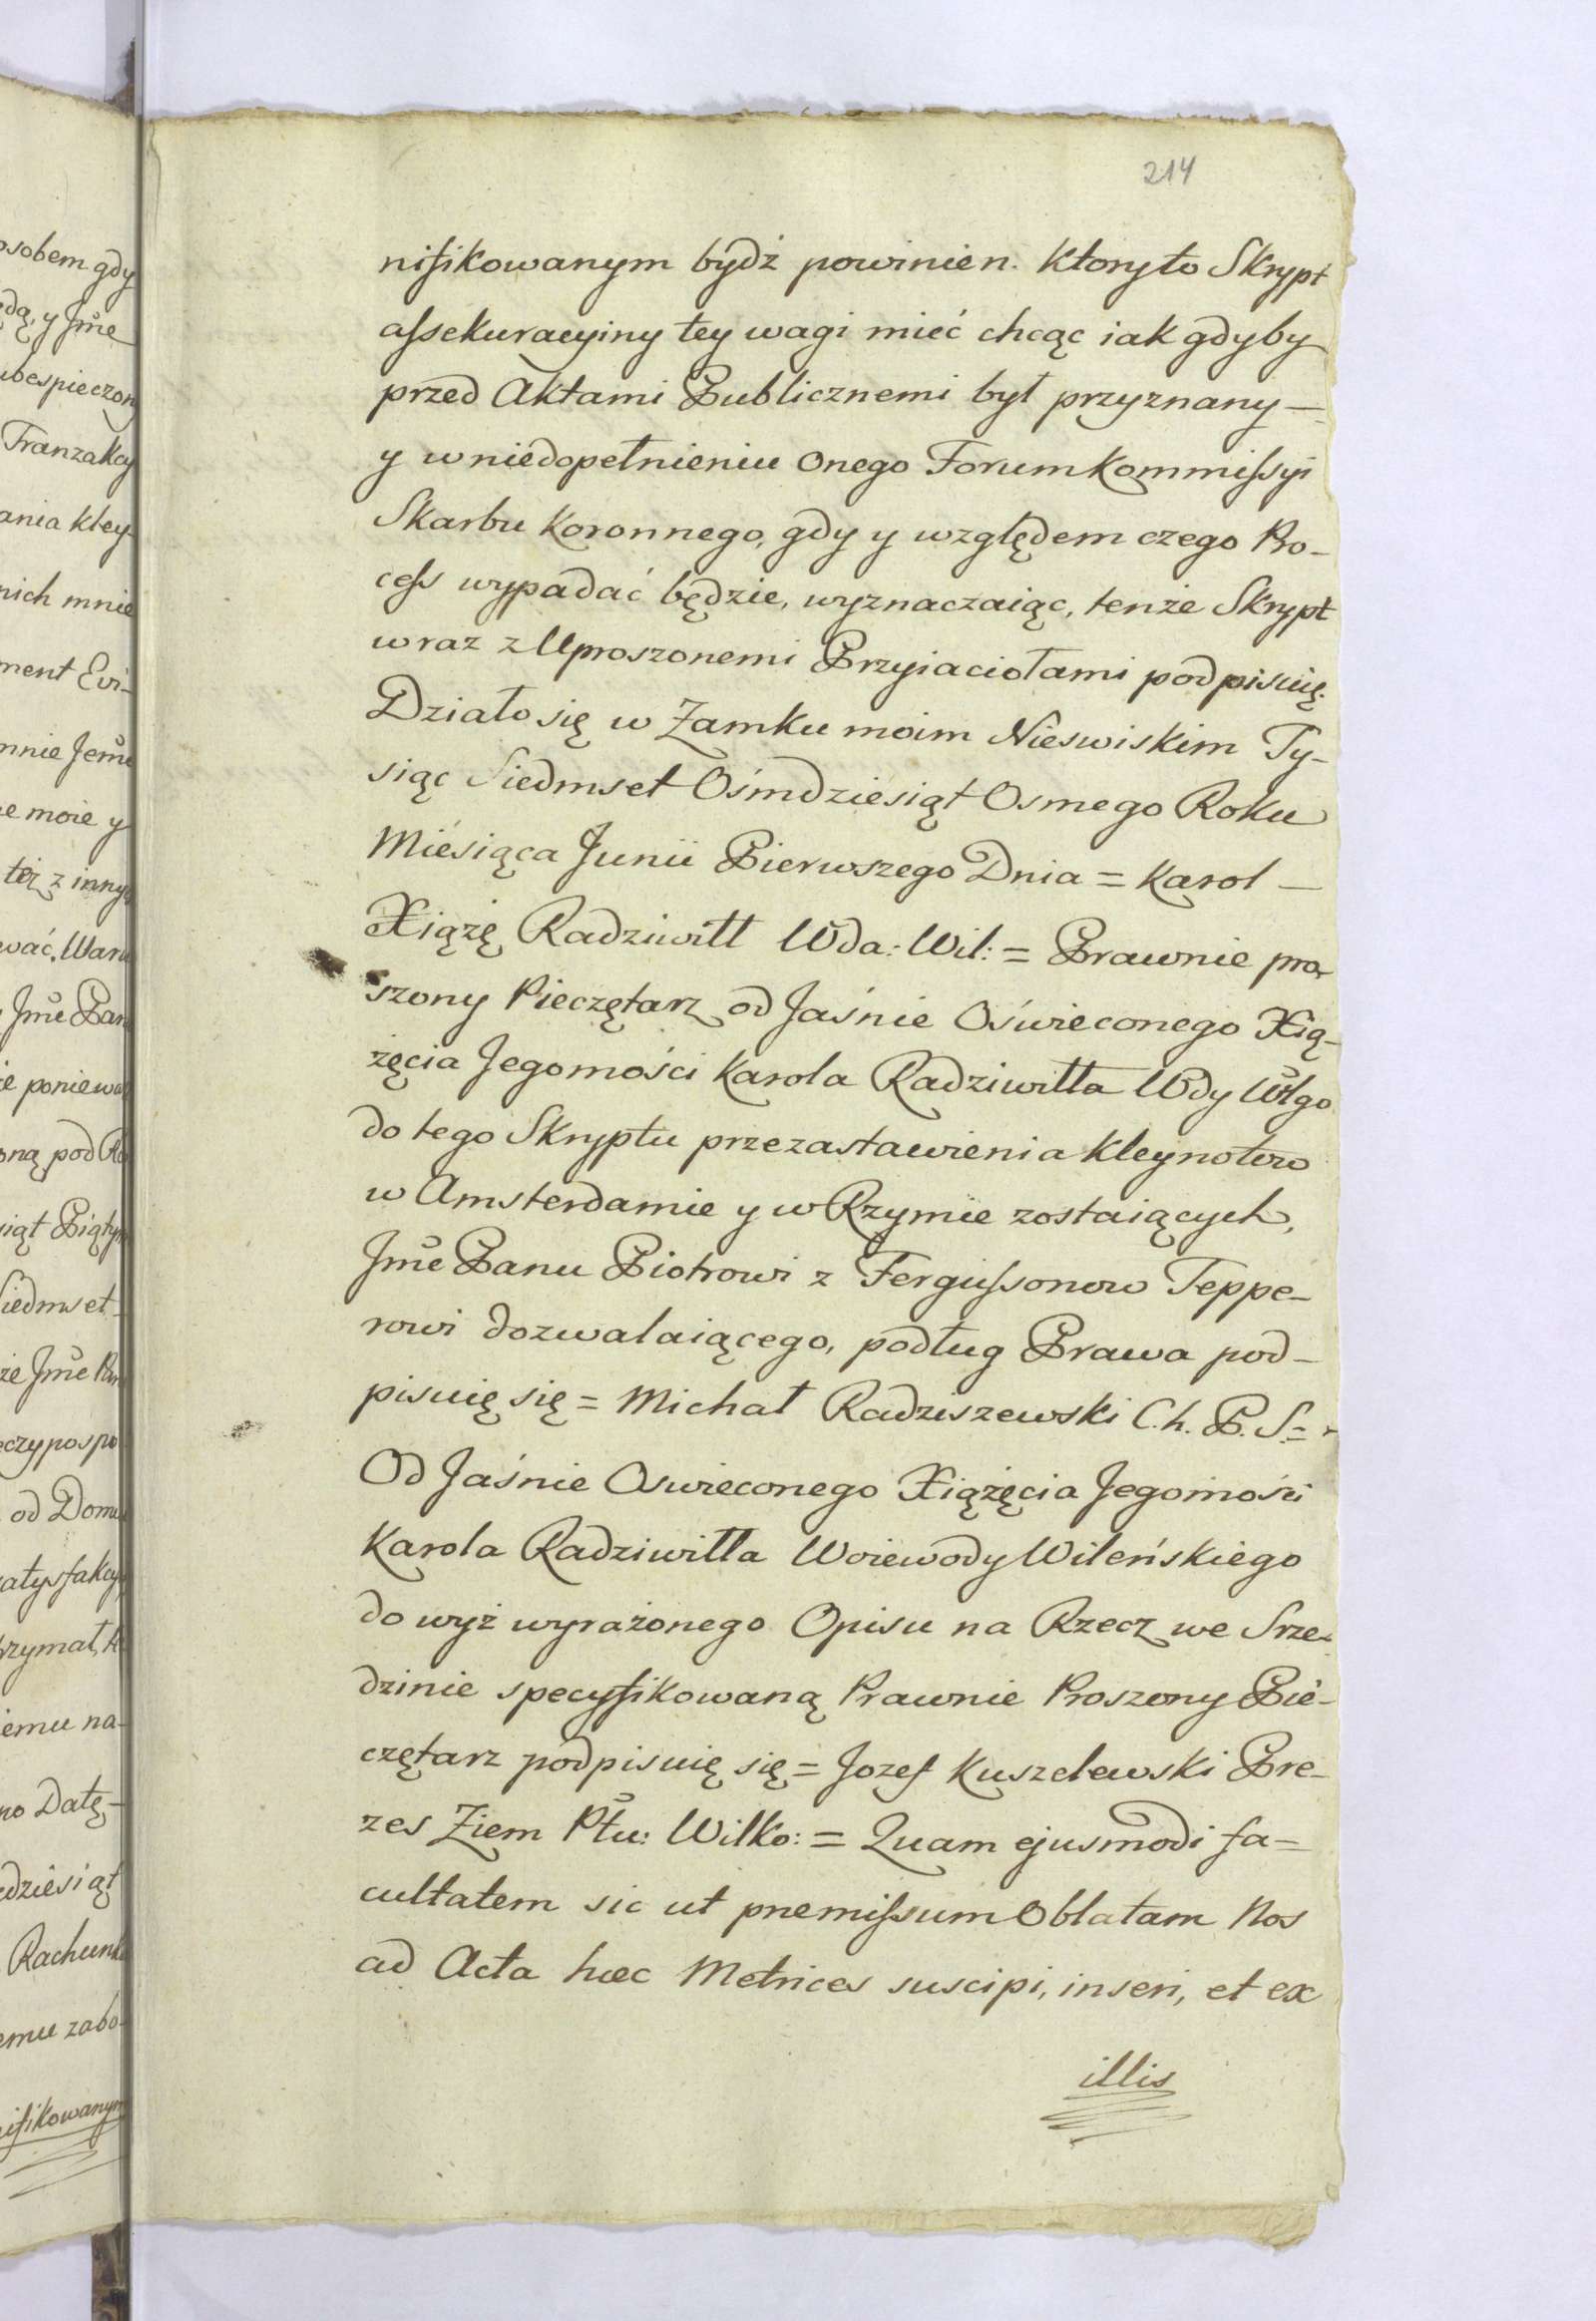 214
nifikowanym bydź powinien. Ktoryto Skrypt
assekuracyiny tey wagi mieć chcąc iak gdyby
przed Aktami Publicznemi był przyznany —
y wniedopełnieniu onego Forum Kommissyi
Skarbu Koronnego, gdy y względem czego Pro-
cess wypadać będzie, wyznaczaiąc, tenże Skrypt
wraz z Uproszonemi Przyiaciołami podpisuię.
Działo się w Zamku moim Nieswiskim Ty-
siąc Siedmset Ośmdziesiąt Osmego Roku
Miesiąca Junii Pierwszego Dnia = Karol —
Xiążę Radziwiłł Wda: Wil: = Prawnie pro-
szony Pieczętarz od Jaśnie Oświeconego Xią-
żęcia Jegomości Karola Radziwiłła Wdy Włgo
do tego Skryptu przezastawienia Kleynotow
w Amsterdamie y w Rzymie zostaiących,
Jme Panu Piotrowi z Fergussonow Teppe-
rowi dozwalaiącego, podług Prawa pod-
pisuię się = Michał Radziszewski C. h. P. S. =
Od Jaśnie Oswieconego Xiążęcia Jegomości
Karola Radziwiłła Woiewody Wileńskiego
do wyż wyrażonego Opisu na Rzecz we Srze-
dzinie specyfikowaną Prawnie Proszony Pie-
czętarz podpisuię się = Jozef Kuszelewski Pre-
zes Ziem Ptu: Wilko: = Quam ejusmodi fa=
cultatem sic ut premissum Oblatam Nos
ad Acta hæc Metrices suscipi, inseri, et ex
illis
osobem gdy
ędą, y Jme
ubespieczon
Tranzakcy
ania kley-
nich mnie
ment Evi-
mnie Jeme
e moie y
też z innych
wać, Waru
Jme Pan
ie poniewa
oną pod Ro
siąt Piątym
Siedmset
że Jme Pan
eczypospo
od Domu
atysfakcy
rzymał, k
iemu na-
no Datę,
edziesiąt
Rachunk
emu zabo-
nifikowanym